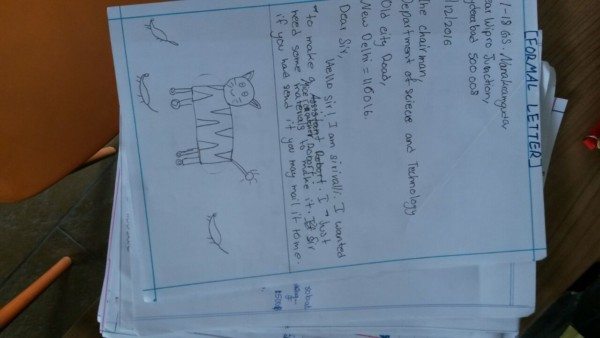 [FORMAL LETTER]
1-18 GS, Nanakramguda,
ear Wipro Junction,
yderabad 500 008
/12/2016
he chairman,
Department of science and Technology
Old city Road,
New Delhi = 110016.
Dear Sir,
Hello sir! I am sirivalli. I wanted
to make a Robot. I Just
need some materials to make it. Sir
if you had send it you may mail it to me.